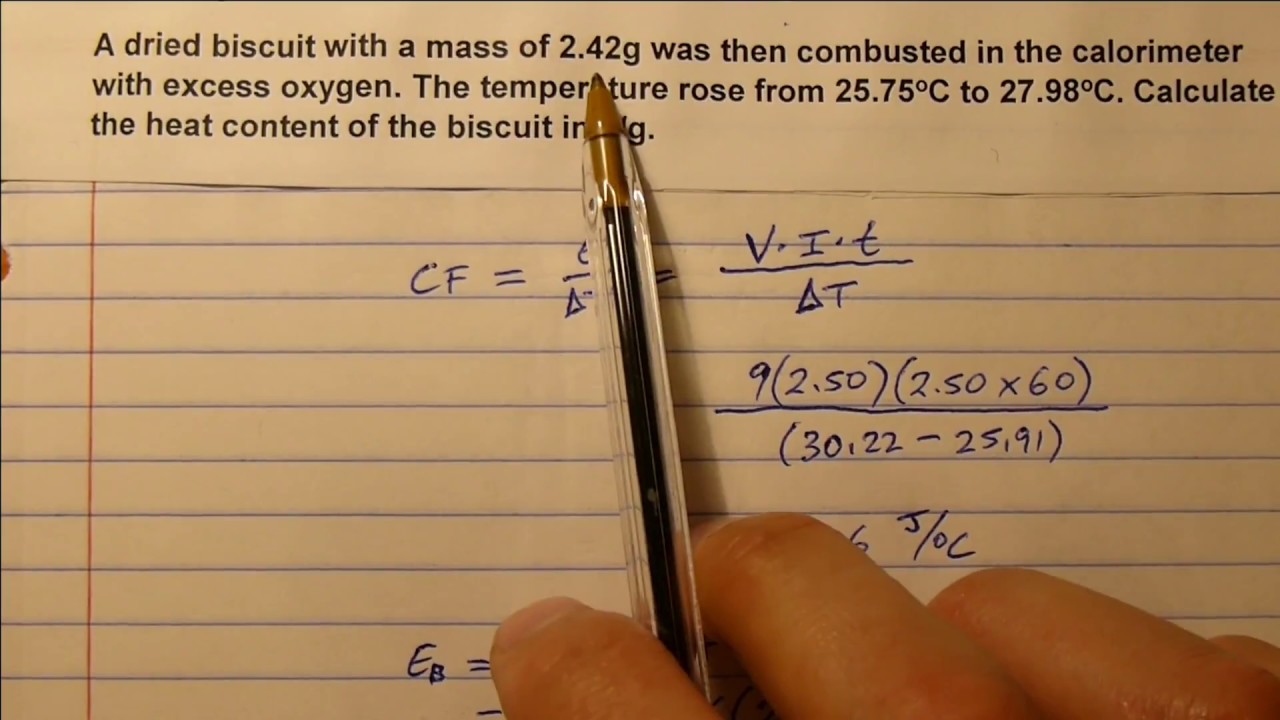 A dried biscuit with a mass of 2.42g was then combusted in the calorimeter
with excess oxygen. The temperature rose from 25.75ºC to 27.98ºC. Calculate
the heat content of the biscuit in /g.
CF = = V.I.t
ΔT
9(2.50)(2.50 x 60)
(30.22 - 25.91)
6 J/ºC
E_B =